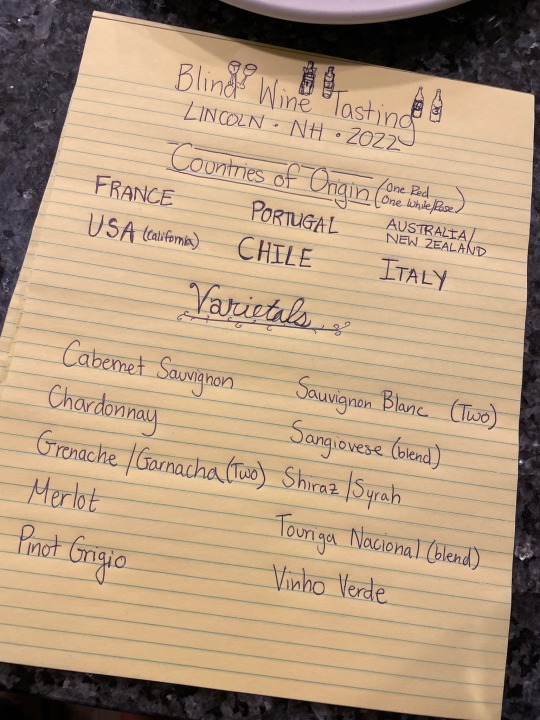 Blind Wine Tasting
LINCOLN · NH · 2022
Countries of Origin (One Red
One White/Rose)
FRANCE
PORTUGAL
AUSTRALIA/
NEW ZEALAND
USA (California)
CHILE
ITALY
Varietals
Cabernet Sauvignon
Sauvignon Blanc (Two)
Chardonnay
Sangiovese (blend)
Grenache/Garnacha (Two)
Shiraz/Syrah
Merlot
Touriga Nacional (blend)
Pinot Grigio
Vinho Verde